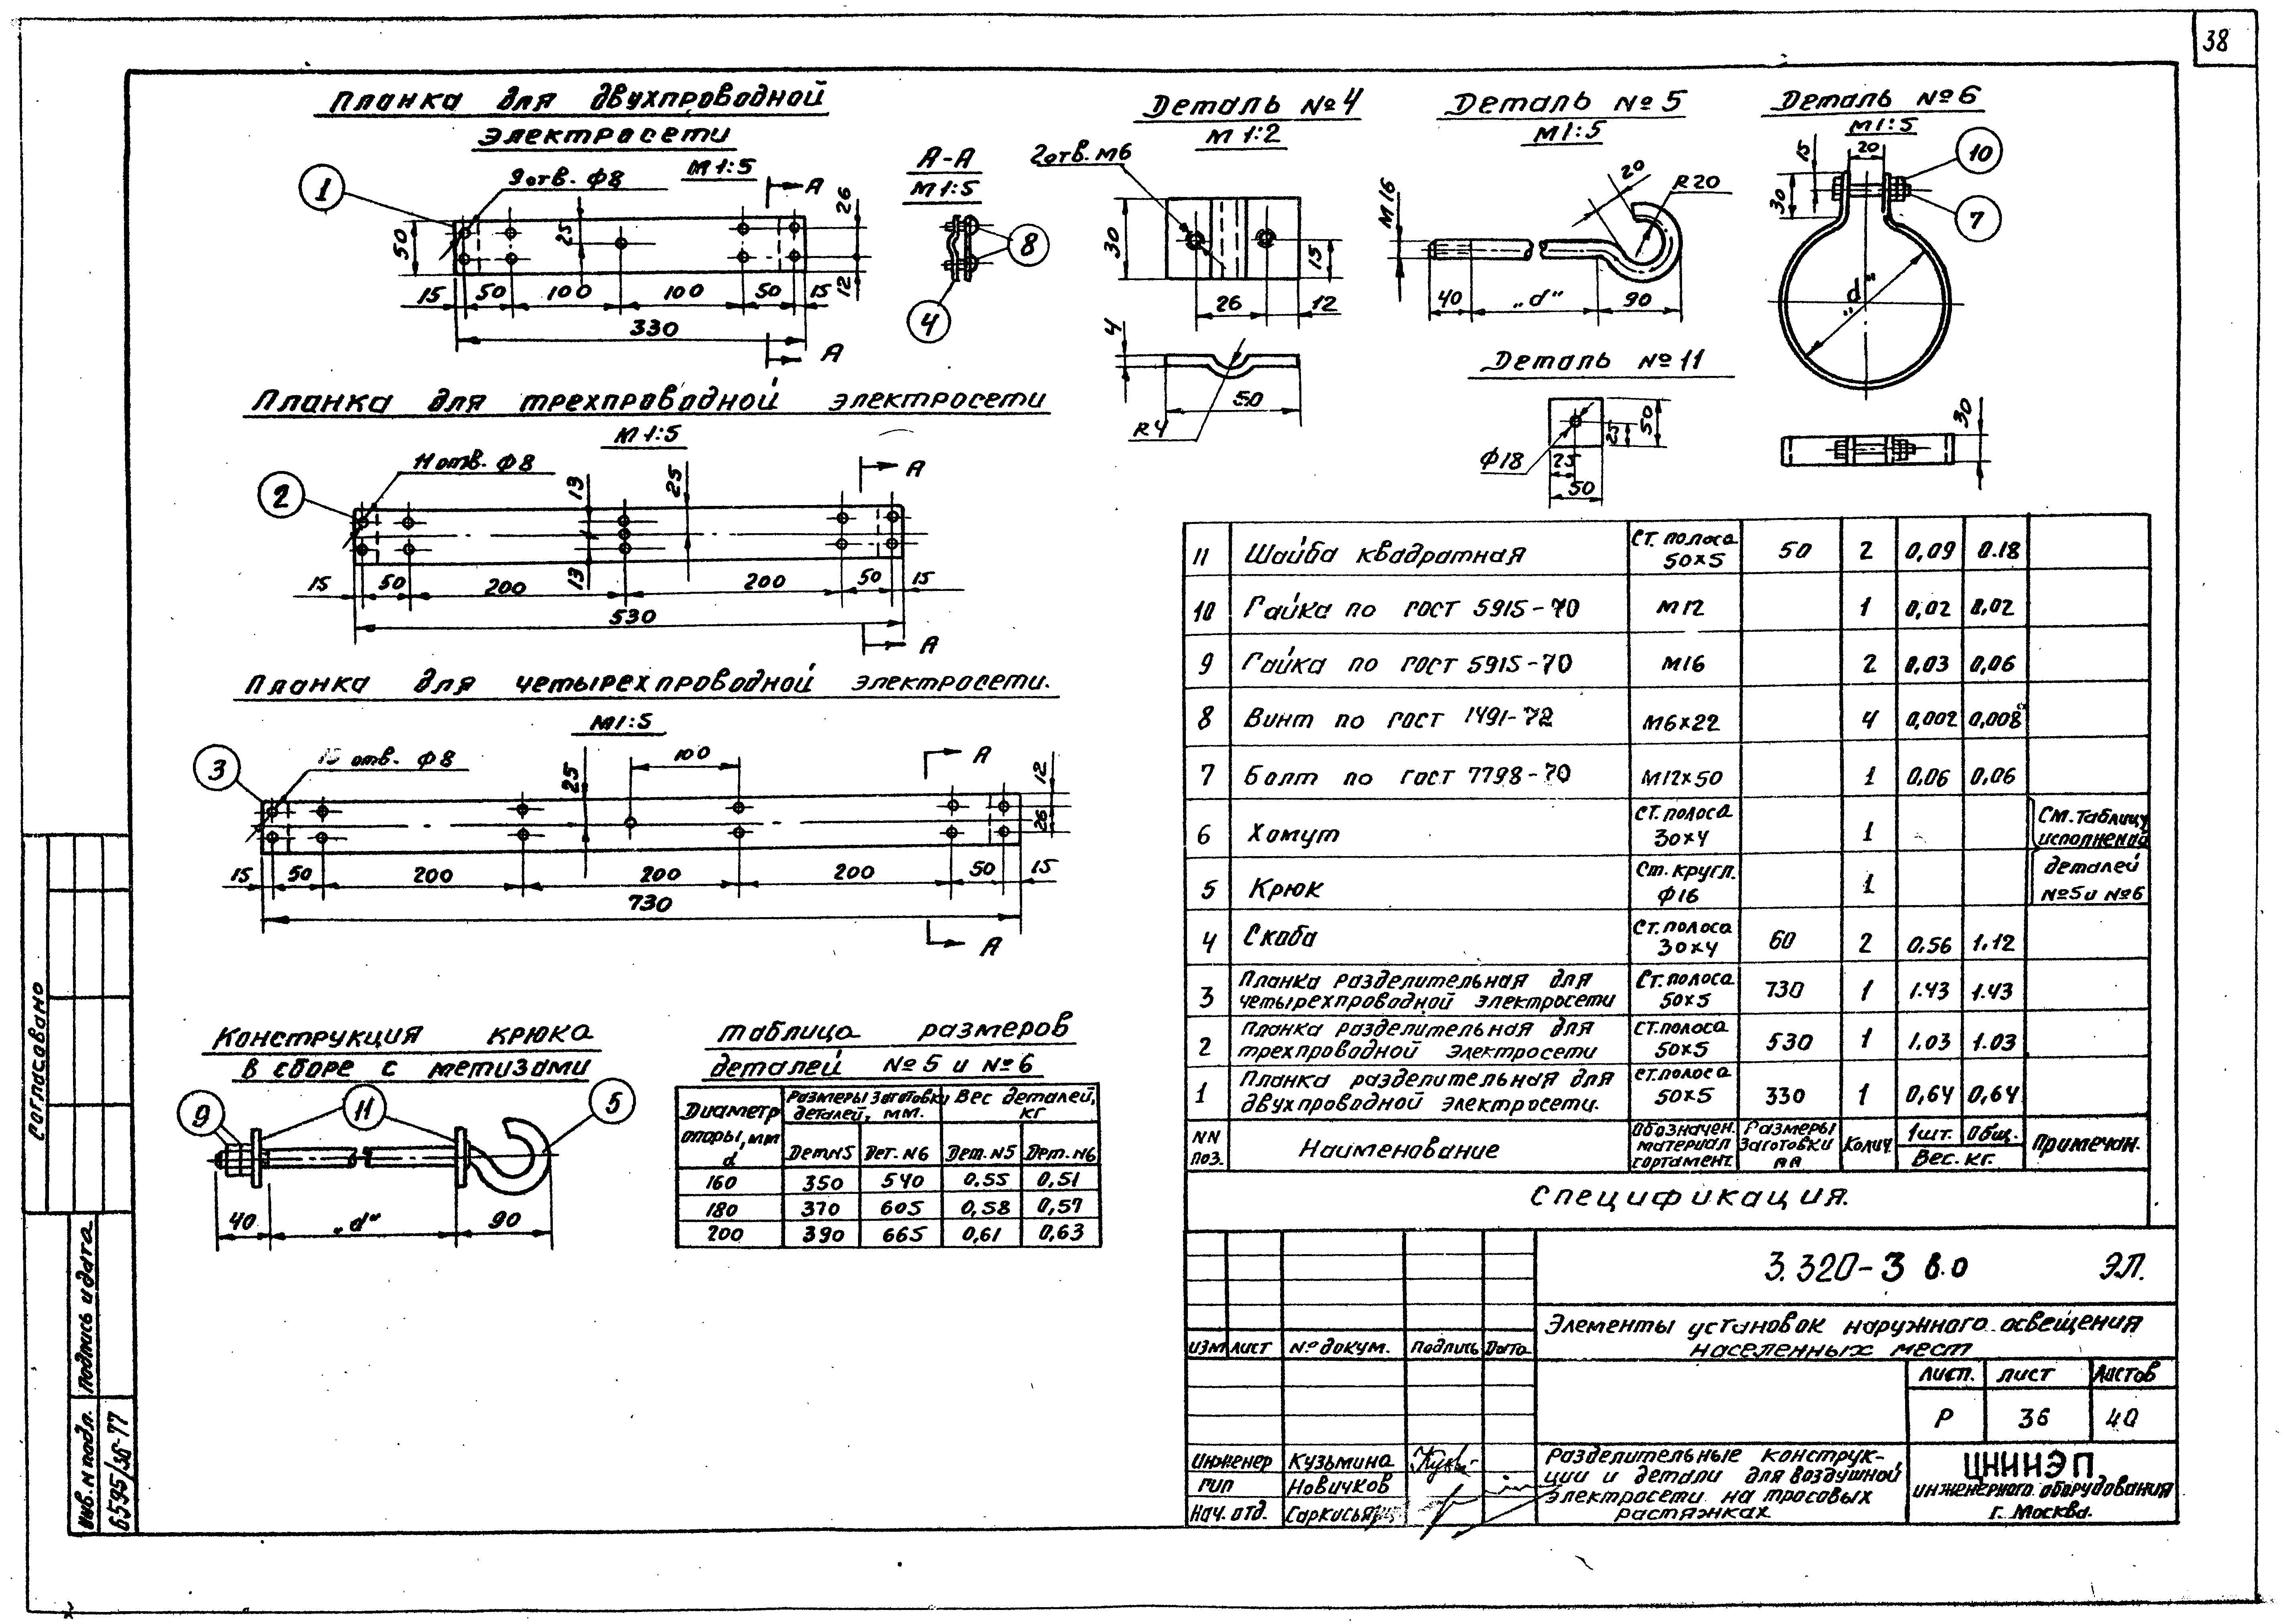 38
Планка для двухпроводной
электросети
М 1:5
1
9 отв. ф8
А
50
25
26
12
15 50 100 100 50 15
330
А
А-А
М 1:5
8
4
Деталь №4
М 1:2
2 отв. М6
30
15
26 12
4
50
R4
Деталь №5
М 1:5
20
R20
М16
40 „d“ 90
Деталь №6
М 1:5
15
20
10
30
7
„d“
30
Деталь №11
ф18
25
50
25
50
Планка для трехпроводной электросети
М 1:5
2
11 отв. ф8
13
25
А
13
15 50 200 200 50 15
530
А
Планка для четырехпроводной электросети.
М 1:5
3
15 отв. ф8
25
100
А
12
26
15 50 200 200 200 50 15
730
А
Конструкция крюка
в сборе с метизами
9
11
5
40 „d“ 90
Таблица размеров
деталей №5 и №6
Диаметр опоры, мм d
Размеры заготовки деталей, мм.
Вес деталей, кг
Дет.N5 Дет. N6 Дет. N5 Дет. N6
160 350 540 0.55 0,51
180 370 605 0,58 0,57
200 390 665 0,61 0,63
11 Шайба квадратная Ст. полоса 50х5 50 2 0,09 0.18
10 Гайка по ГОСТ 5915-70 М12 1 0,02 0,02
9 Гайка по ГОСТ 5915-70 М16 2 0,03 0,06
8 Винт по ГОСТ 1491-72 М6х22 4 0,002 0,008
7 Болт по ГОСТ 7798-70 М12х50 1 0,06 0,06
6 Хомут Ст. полоса 30х4 1 См. таблицу исполнения
5 Крюк Ст. кругл. ф16 1 деталей №5 и №6
4 Скоба Ст. полоса 30х4 60 2 0,56 1.12
3 Планка разделительная для четырехпроводной электросети Ст. полоса 50х5 730 1 1.43 1.43
2 Планка разделительная для трехпроводной электросети Ст. полоса 50х5 530 1 1.03 1.03
1 Планка разделительная для двухпроводной электросети. Ст. полоса 50х5 330 1 0,64 0,64
NN поз. Наименование Обозначен. материал сортамент. Размеры заготовки мм Колич. 1шт. Общ. Вес. кг. Примечан.
Спецификация.
3.320-3 в.0 ЭЛ.
Элементы установок наружного освещения
населенных мест
Изм Лист № докум. Подпись Дата
Лист. Лист Листов
Р 36 40
Инженер Кузьмина
ГИП Новичков
Нач. отд. Саркисьян
Разделительные конструк-
ции и детали для воздушной
электросети на тросовых
растяжках
ЦНИИЭП
инженерного оборудования
г. Москва.
Согласовано
Подпись и дата
Инв. N подл.
6595/36-77